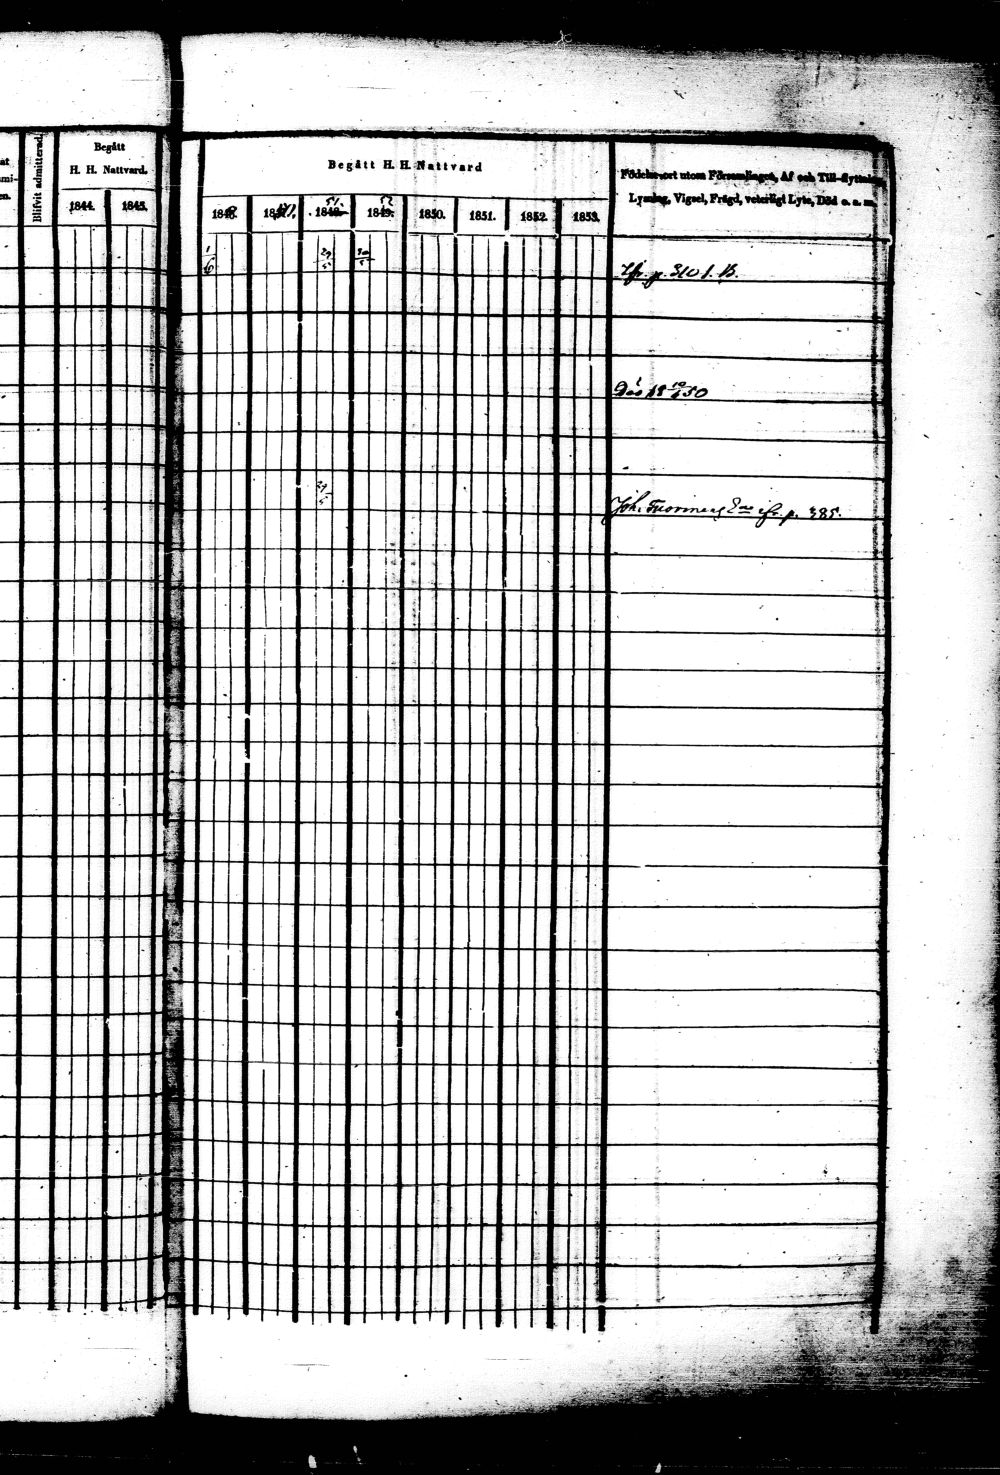 at
mi-
en.
Blifvit admitterad.
Begått
H. H. Nattvard.
1844. 1845.
Begått H. H. Nattvard
51. 52
1848. 1849. 1850. 1851. 1852. 1853.
Födelseort utom Församlingen, Af och Till-flyttning,
Lysning, Vigsel, Frägd, veterligt Lyte, Död o. s. m.
1/6 29/5 30/5
Jfr. p. 310 l. B.
Död 18 10/6 50
29/5
Joh. p. 385.